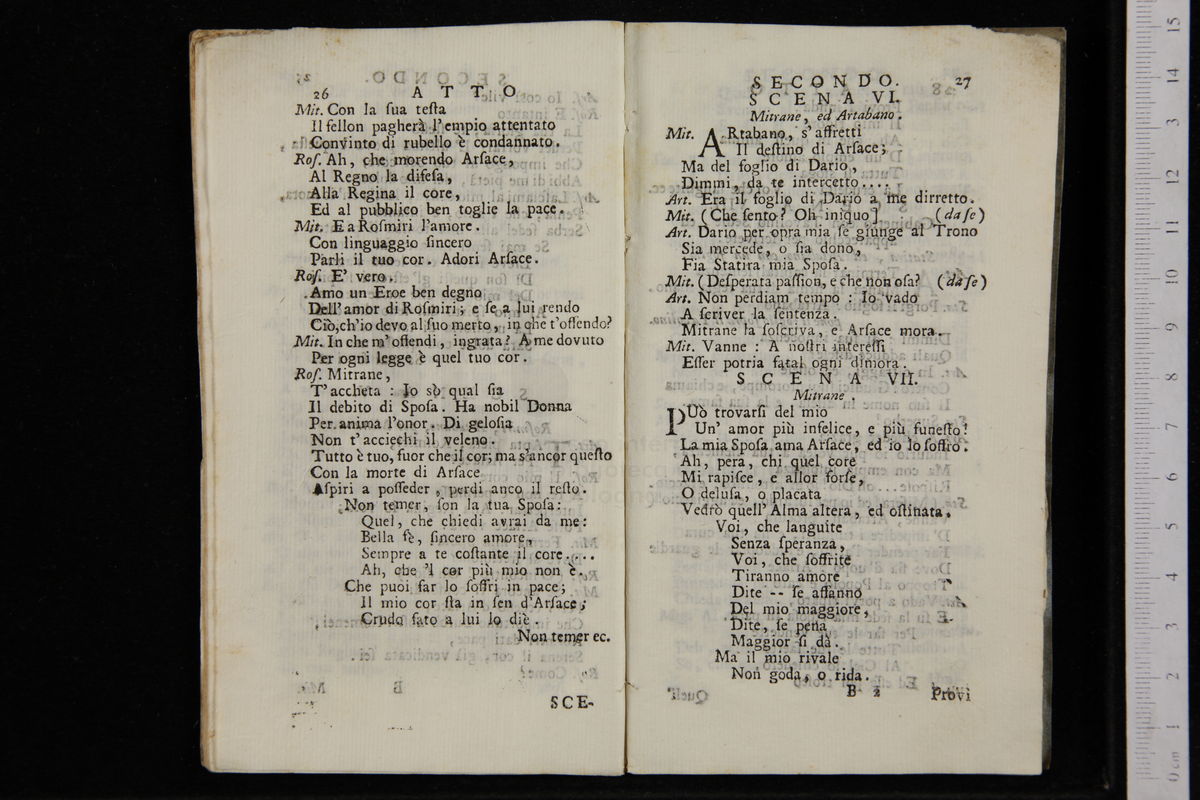 26 ATTO
Mit. Con la ſua teſta
Il fellon pagherà l'empio attentato
Convinto di rubello è condannato.
Roſ. Ah, che morendo Arſace,
Al Regno la difeſa,
Alla Regina il core,
Ed al pubblico ben toglie la pace.
Mit. E a Roſmiri l'amore.
Con linguaggio ſincero
Parli il tuo cor. Adori Arſace.
Roſ. E' vero.
Amo un Eroe ben degno
Dell'amor di Roſmiri; e ſe a lui rendo
Ciò, ch'io devo al ſuo merto, in che t'offendo?
Mit. In che m'offendi, ingrata? A me dovuto
Per ogni legge è quel tuo cor.
Roſ. Mitrane,
T'accheta : Io sò qual ſia
Il debito di Spoſa. Ha nobil Donna
Per anima l'onor. Di geloſia
Non t'acciechi il veleno.
Tutto è tuo, fuor che il cor; ma s'ancor queſto
Con la morte di Arſace
Aſpiri a poſſeder, perdi anco il reſto.
Non temer, ſon la tua Spoſa:
Quel, che chiedi avrai da me:
Bella fè, ſincero amore,
Sempre a te coſtante il core....
Ah, che 'l cor più mio non è.
Che puoi far lo ſoffri in pace;
Il mio cor ſta in ſen d'Arſace;
Crudo fato a lui lo diè.
Non temer ec.
SCE-
SECONDO. 27
SCENA VI.
Mitrane, ed Artabano.
Mit. ARtabano, s'affretti
Il deſtino di Arſace;
Ma del foglio di Dario,
Dimmi, da te intercetto....
Art. Era il foglio di Dario a me dirretto.
Mit. (Che ſento? Oh iniquo] (da ſe)
Art. Dario per opra mia ſe giunge al Trono
Sia mercede, o ſia dono,
Fia Statira mia Spoſa.
Mit. (Deſperata paſſion, e che non oſa? (da ſe)
Art. Non perdiam tempo : Io vado
A ſcriver la ſentenza.
Mitrane la ſoſcriva, e Arſace mora.
Mit. Vanne : A noſtri intereſſi
Eſſer potria fatal ogni dimora.
SCENA VII.
Mitrane.
PUò trovarſi del mio
Un' amor più infelice, e più funeſto!
La mia Spoſa ama Arſace, ed io lo ſoffro.
Ah, pera, chi quel core
Mi rapiſce, e allor forſe,
O deluſa, o placata
Vedrò quell' Alma altera, ed oſtinata.
Voi, che languite
Senza ſperanza,
Voi, che ſoffrite
Tiranno amore
Dite -- ſe affanno
Del mio maggiore,
Dite, ſe pena
Maggior ſi dà.
Ma il mio rivale
Non goda, o rida.
B 2 Provi